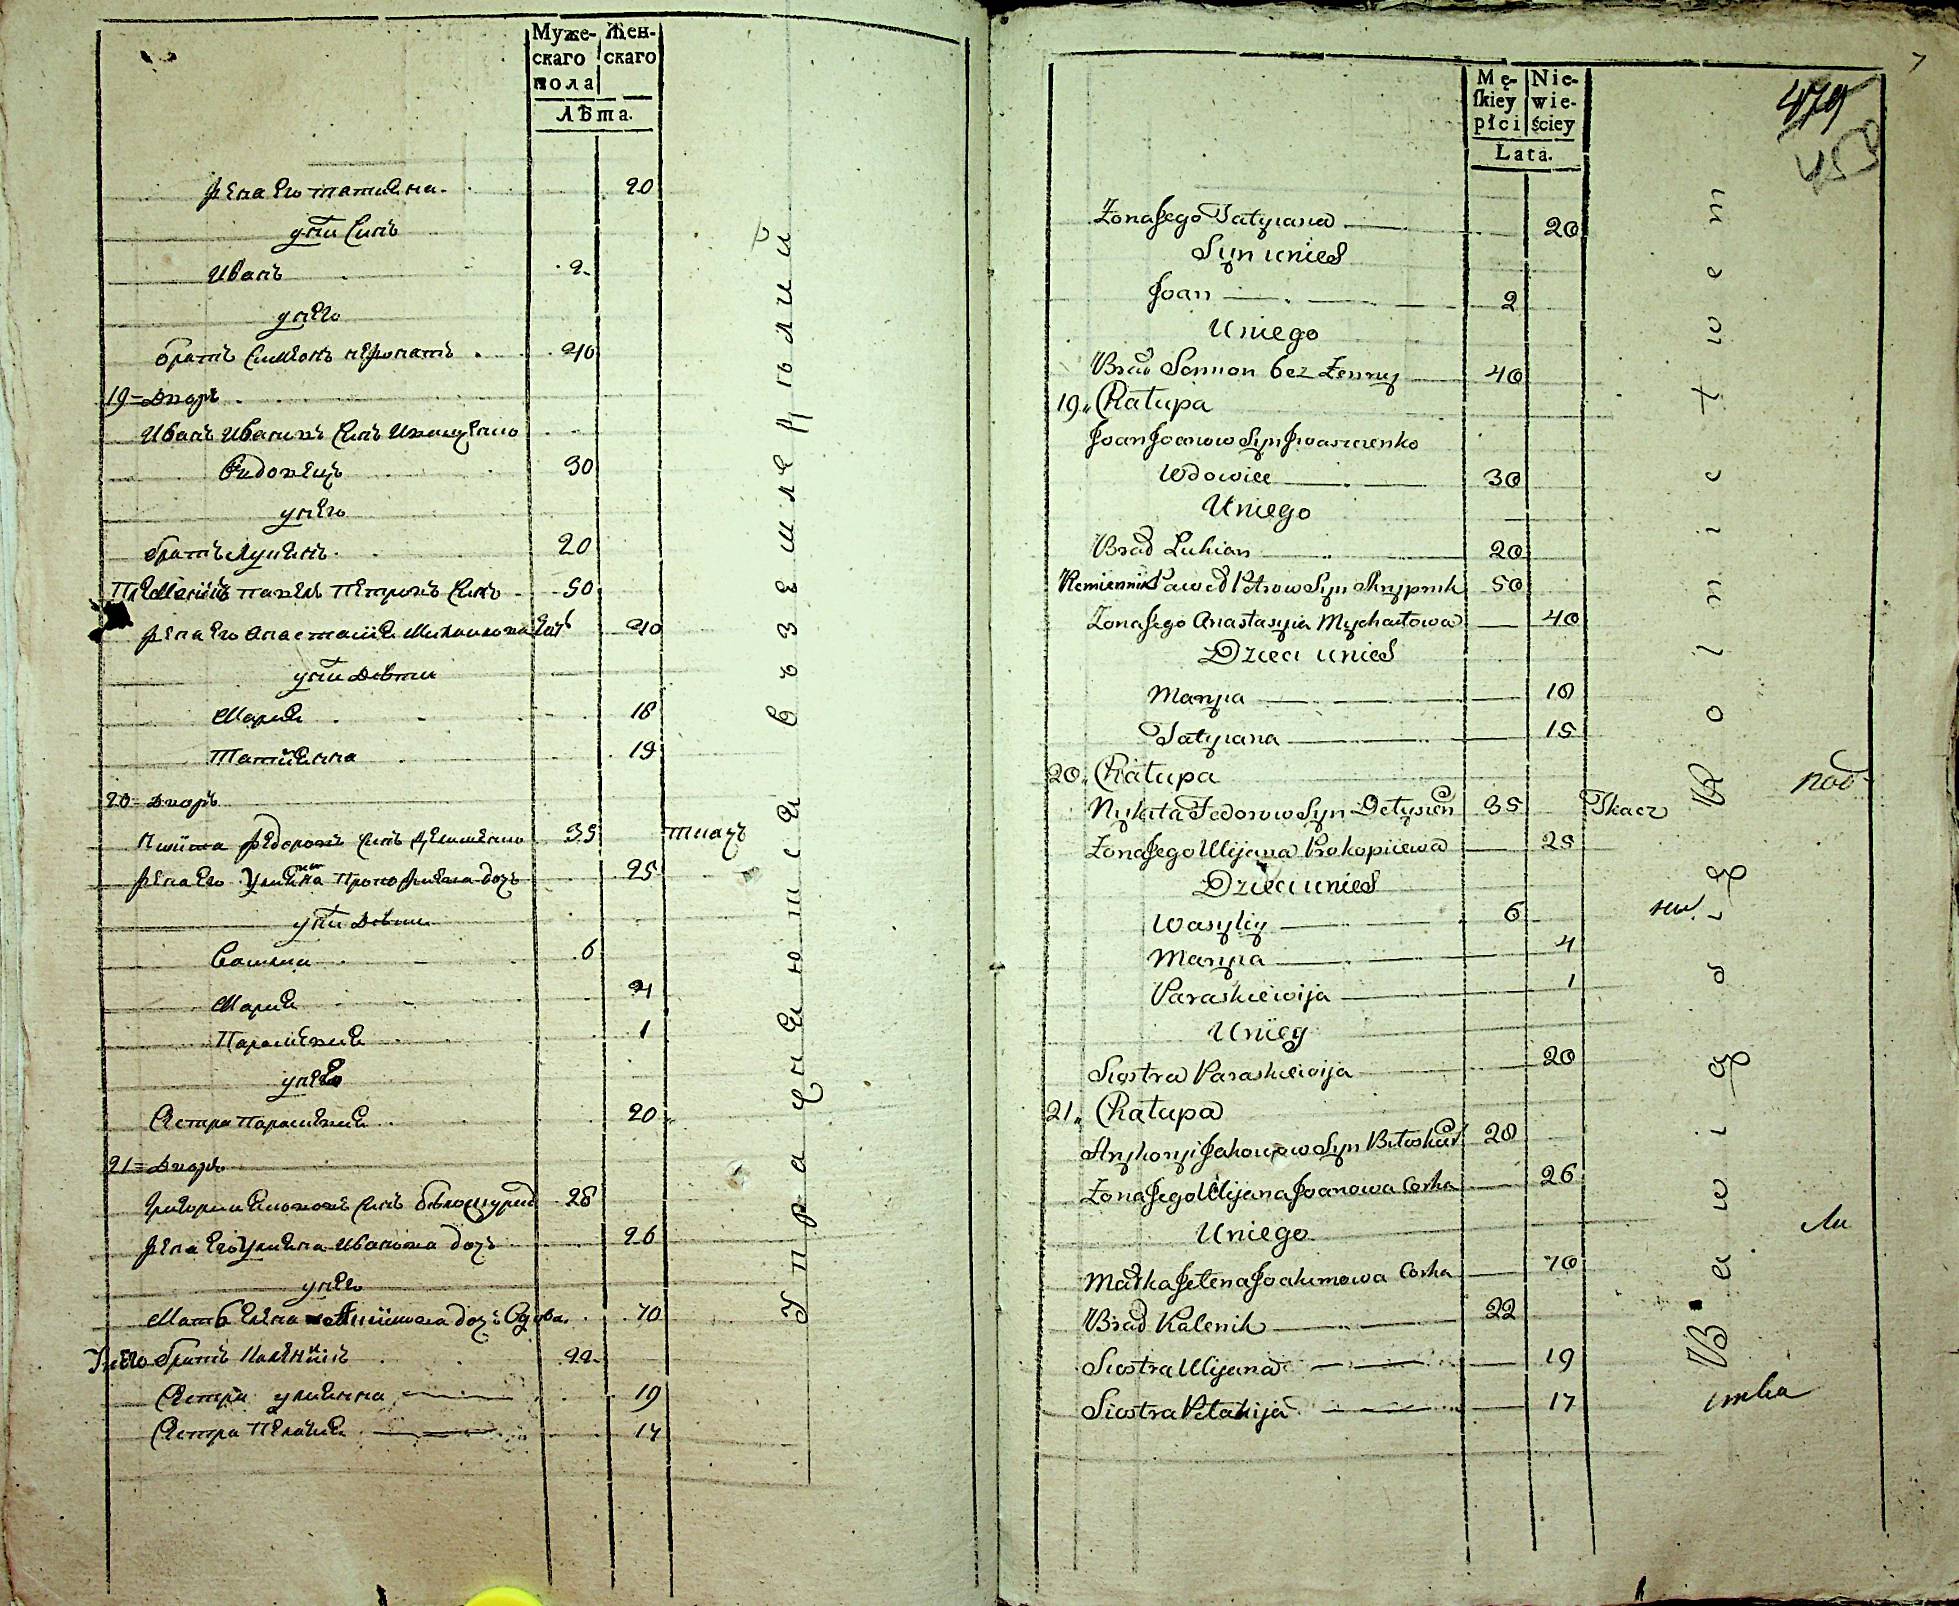 Муже-
скаго
пола
Жен-
скаго
Лѣта.
жена его татиана 20
у ней сынъ
Иванъ 2
у него
братъ Симеонъ нежонатъ 40
19 = Дворъ
Иванъ Ивановъ сынъ Иващенко
вдовецъ 30
у него
братъ Лукиянъ 20
Павелъ Петровъ сынъ 50
жена его анастасия Михайлова дочь 40
у ней дѣти
Мария 18
Татиянна 15
20 = Дворъ
Никита Федоровъ сынъ 35 ткачъ
жена его Улияна Прокофиева дочь 25
у ней дѣти
Василий 6
Мария 4
Параскевия 1
у него
Сестра Параскевия 20
21 = Дворъ
Григорий Якововъ сынъ 28
жена его Улияна Иванова дочь 26
у него
Мать Елена дочь вдова 70
У него братъ Каленикъ 22
Сестра улиянна 19
Сестра Пелагия 17
Упражняются въ земледѣлии
7
479
450
Mę-
skiey
płci
Nie-
wie-
ściey
Lata.
Żona Jego Tatyiana 20
Syn u nieÿ
Joan 2
U niego
Brat Semion bez Żenny 40
19. Chałupa
Joan Joanow Syn Jwaszczenko
Wdowiec 30
U niego
Brat Lukian 20
Kemiennik Paweł Petrow Syn Skrypnik 50
Żona Jego Anastasyia Mychaiłowa 40
Dzieci u nieÿ
Maryia 18
Tatyiana 15
20. Chałupa
Nykita Fedorow Syn 35 Tkacz
Żona Jego Ulijana Prokopiiewa 25
Dzieci u nieÿ
Wasyliy 6
Maryia 4
Paraskiewija 1
U nieg
Siostra Paraskiewija 20
21. Chałupa
Hryhoryi Jakowow Syn 28
Żona Jego Ulijana Joanowa Corka 26
U niego
Matka Jelena Joakimowa Corka 70
Brat Kalenik 22
Siostra Ulijana 19
Siostra Pelahija 17
Bawią się około Rolnictwem